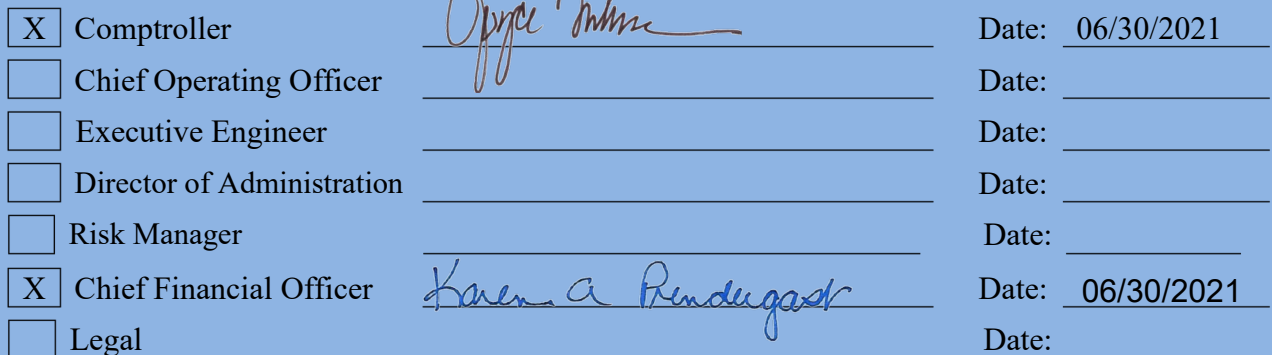 X Comptroller Date: 06/30/2021
Chief Operating Officer Date:
Executive Engineer Date:
Director of Administration Date:
Risk Manager Date:
X Chief Financial Officer Karen A Prendergast Date: 06/30/2021
Legal Date: